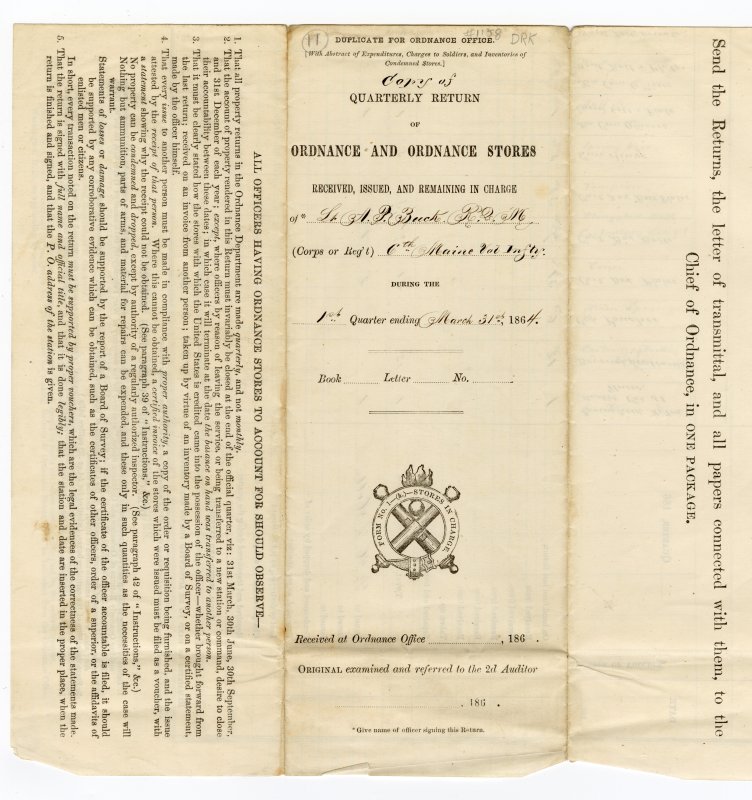 ALL OFFICERS HAVING ORDNANCE STORES TO ACCOUNT FOR SHOULD OBSERVE—
1. That all property returns in the Ordnance Department are made quarterly, and not monthly.
2. That the account of property rendered in this Return must invariably be closed at the end of the official quarter, viz: 31st March, 30th June, 30th September,
and 31st December of each year; except, where officers by reason of leaving the service, or being transferred to a new station or command, desire to close
their accountability between these dates; in which case it will terminate at the date the balance on hand was transferred to another person.
3. That it must be clearly stated how the stores with which the United States is credited came into the possession of the officer—whether brought forward from
the last return; received on an invoice from another person; taken up by virtue of an inventory made by a Board of Survey, or on a certified statement,
made by the officer himself.
4. That every issue to another person must be made in compliance with proper authority, a copy of the order or requisition being furnished, and the issue
attested by the receipt of that person. Where this cannot be obtained, a certified invoice of the stores which were issued must be filed as a voucher, with
a statement showing why the receipt could not be obtained. (See paragraph 39 of "Instructions," &c.)
No property can be condemned and dropped, except by authority of a regularly authorized inspector. (See paragraph 42 of "Instructions," &c.)
Nothing but ammunition, parts of arms, and material for repairs can be expended, and these only in such quantities as the necessities of the case will
warrant.
Statements of losses or damage should be supported by the report of a Board of Survey; if the certificate of the officer accountable is filed, it should
be supported by any corroborative evidence which can be obtained, such as the certificates of other officers, order of a superior, or the affidavits of
enlisted men or citizens.
In short, every transaction noted on the return must be supported by proper vouchers, which are the legal evidences of the correctness of the statements made.
5. That the return is signed with full name and official title, and that it is done legibly; that the station and date are inserted in the proper place, when the
return is finished and signed, and that the P. O. address of the station is given.
11
#1189 DRK
DUPLICATE FOR ORDNANCE OFFICE.
[With Abstract of Expenditures, Charges to Soldiers, and Inventories of
Condemned Stores.]
Copy of
QUARTERLY RETURN
OF
ORDNANCE AND ORDNANCE STORES
RECEIVED, ISSUED, AND REMAINING IN CHARGE
of* Lt A. P. Buck R. Q. M
(Corps or Reg't) 6th Maine Vol Infty.
DURING THE
1st Quarter ending March 31st, 1864.
Book Letter No.
FORM No. 1—(b.)—STORES IN CHARGE.
Received at Ordnance Office , 186 .
ORIGINAL examined and referred to the 2d Auditor
, 186 .
*Give name of officer signing this Return.
Send the Returns, the letter of transmittal, and all papers connected with them, to the
Chief of Ordnance, in ONE PACKAGE.